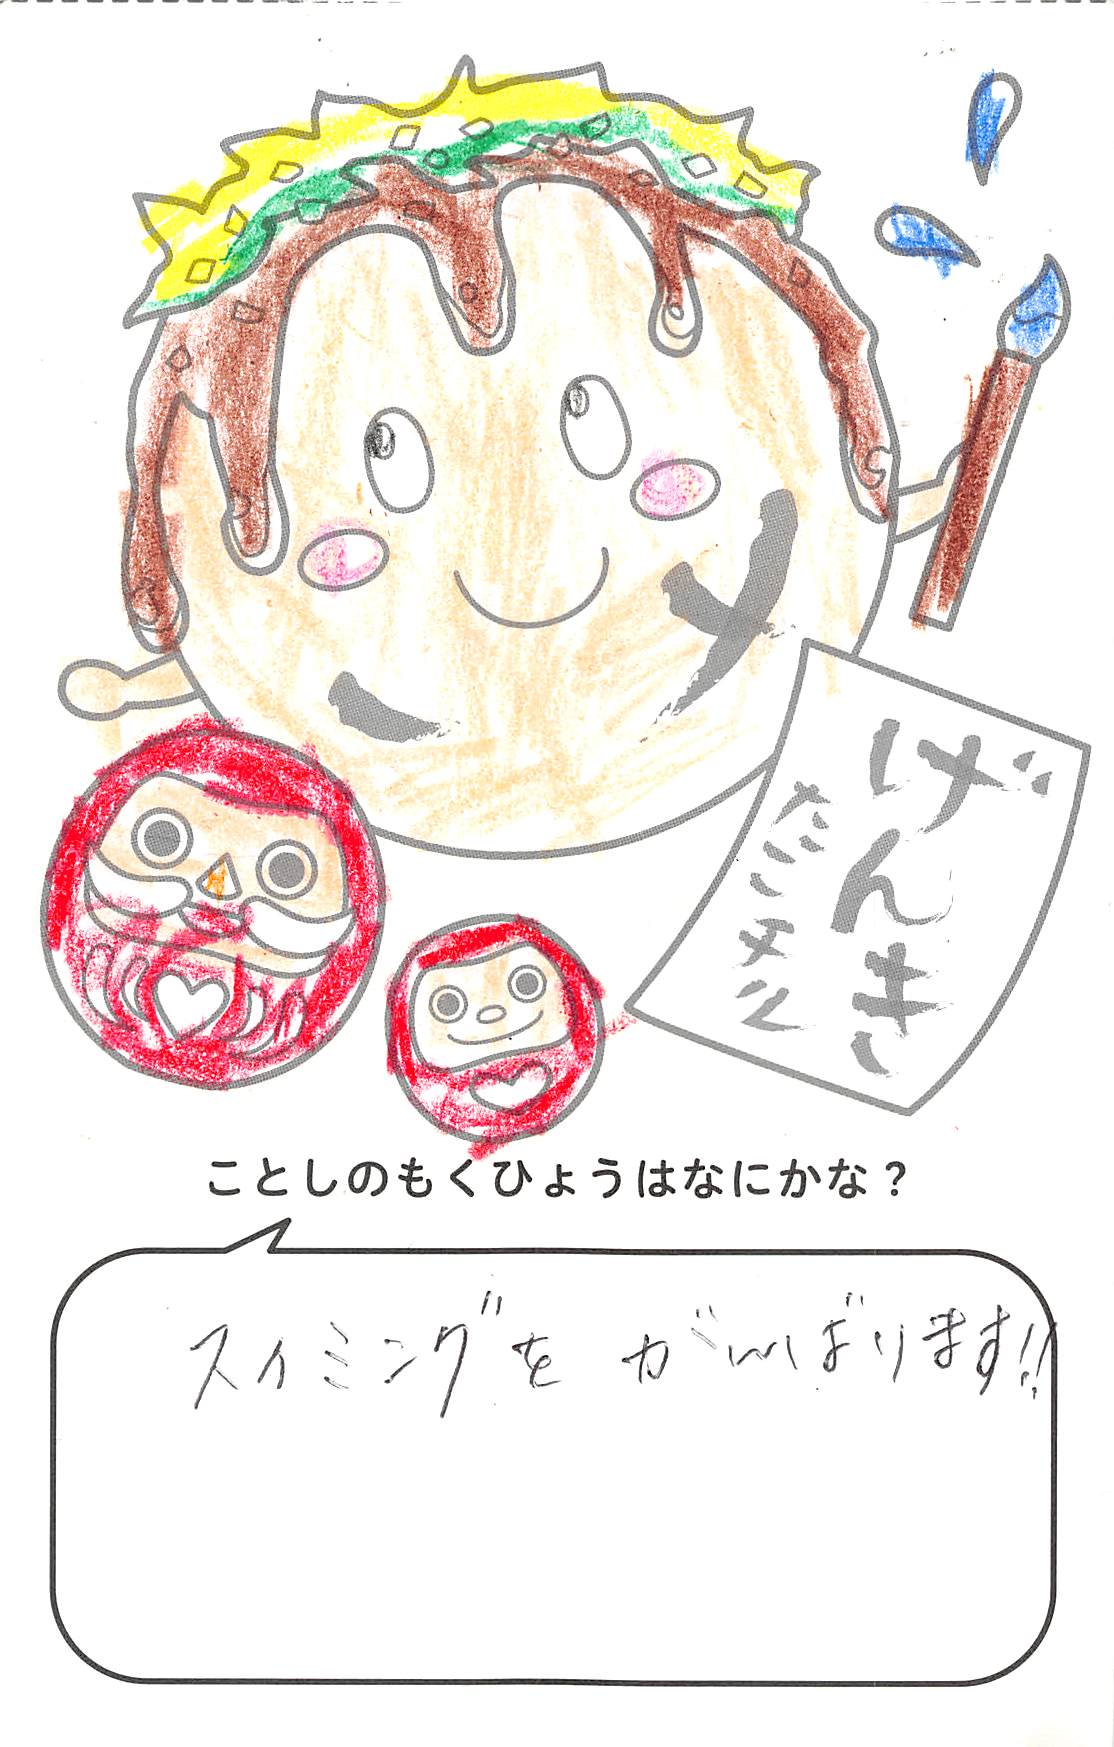 げんき
たこヤン
ことしのもくひょうはなにかな？
スイミングを がんばります!!